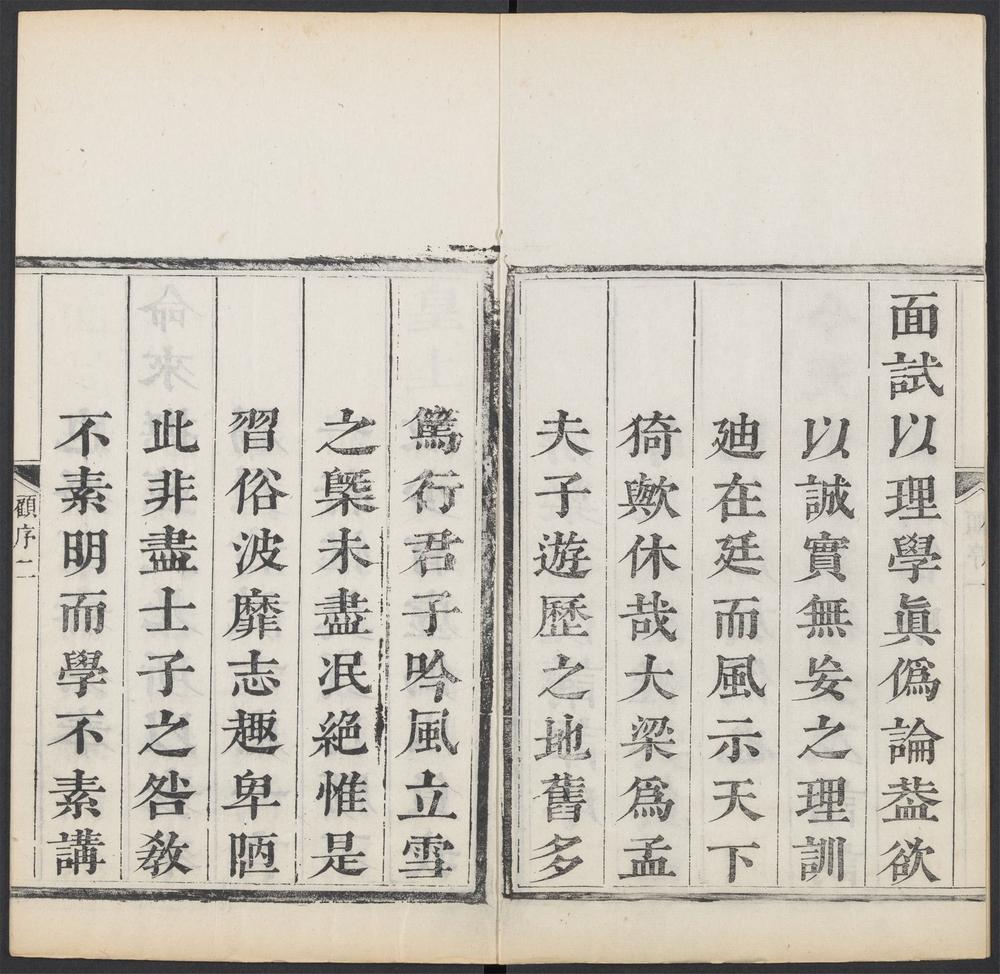 面試以理學眞僞論葢欲
以誠實無妄之理訓
廸在廷而風示天下
猗歟休哉大梁爲孟
夫子遊歷之地舊多
篤行君子吟風立雪
之槩未盡泯絕惟是
習俗波靡志趣卑陋
此非盡士子之咎敎
不素明而學不素講
顧序 二